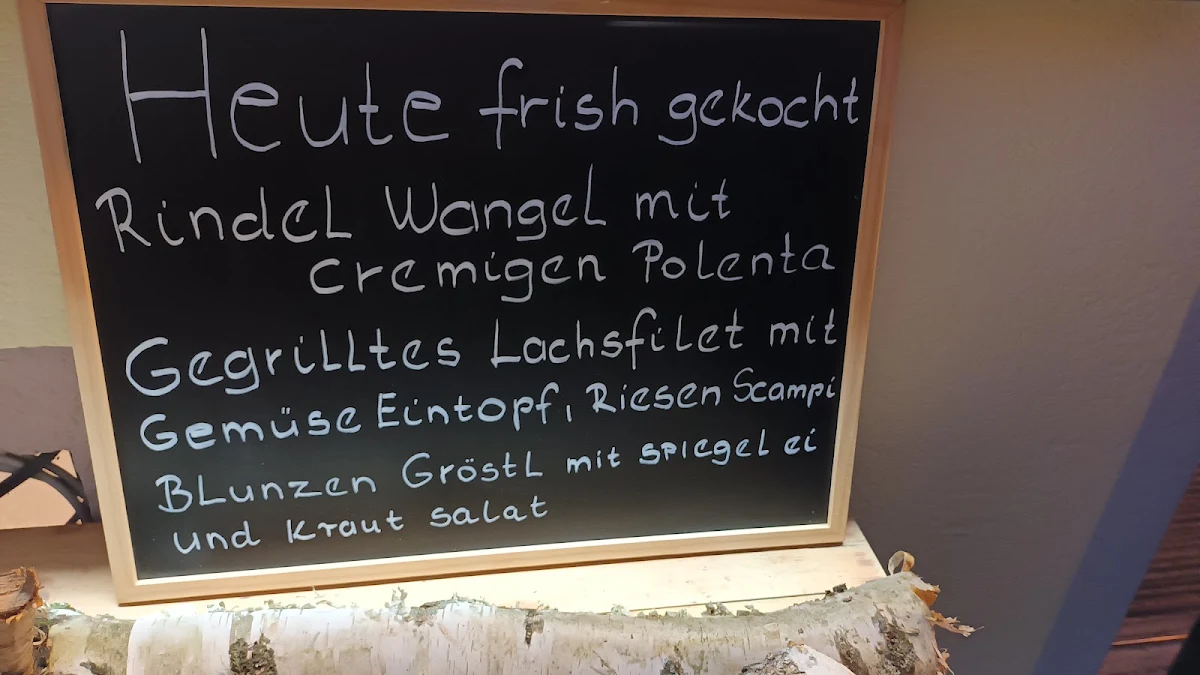 Heute frish gekocht
Rindel Wangel mit
cremigen Polenta
Gegrilltes Lachsfilet mit
Gemüse Eintopf, Riesen Scampi
Blunzen Gröstl mit spiegel ei
und Kraut salat